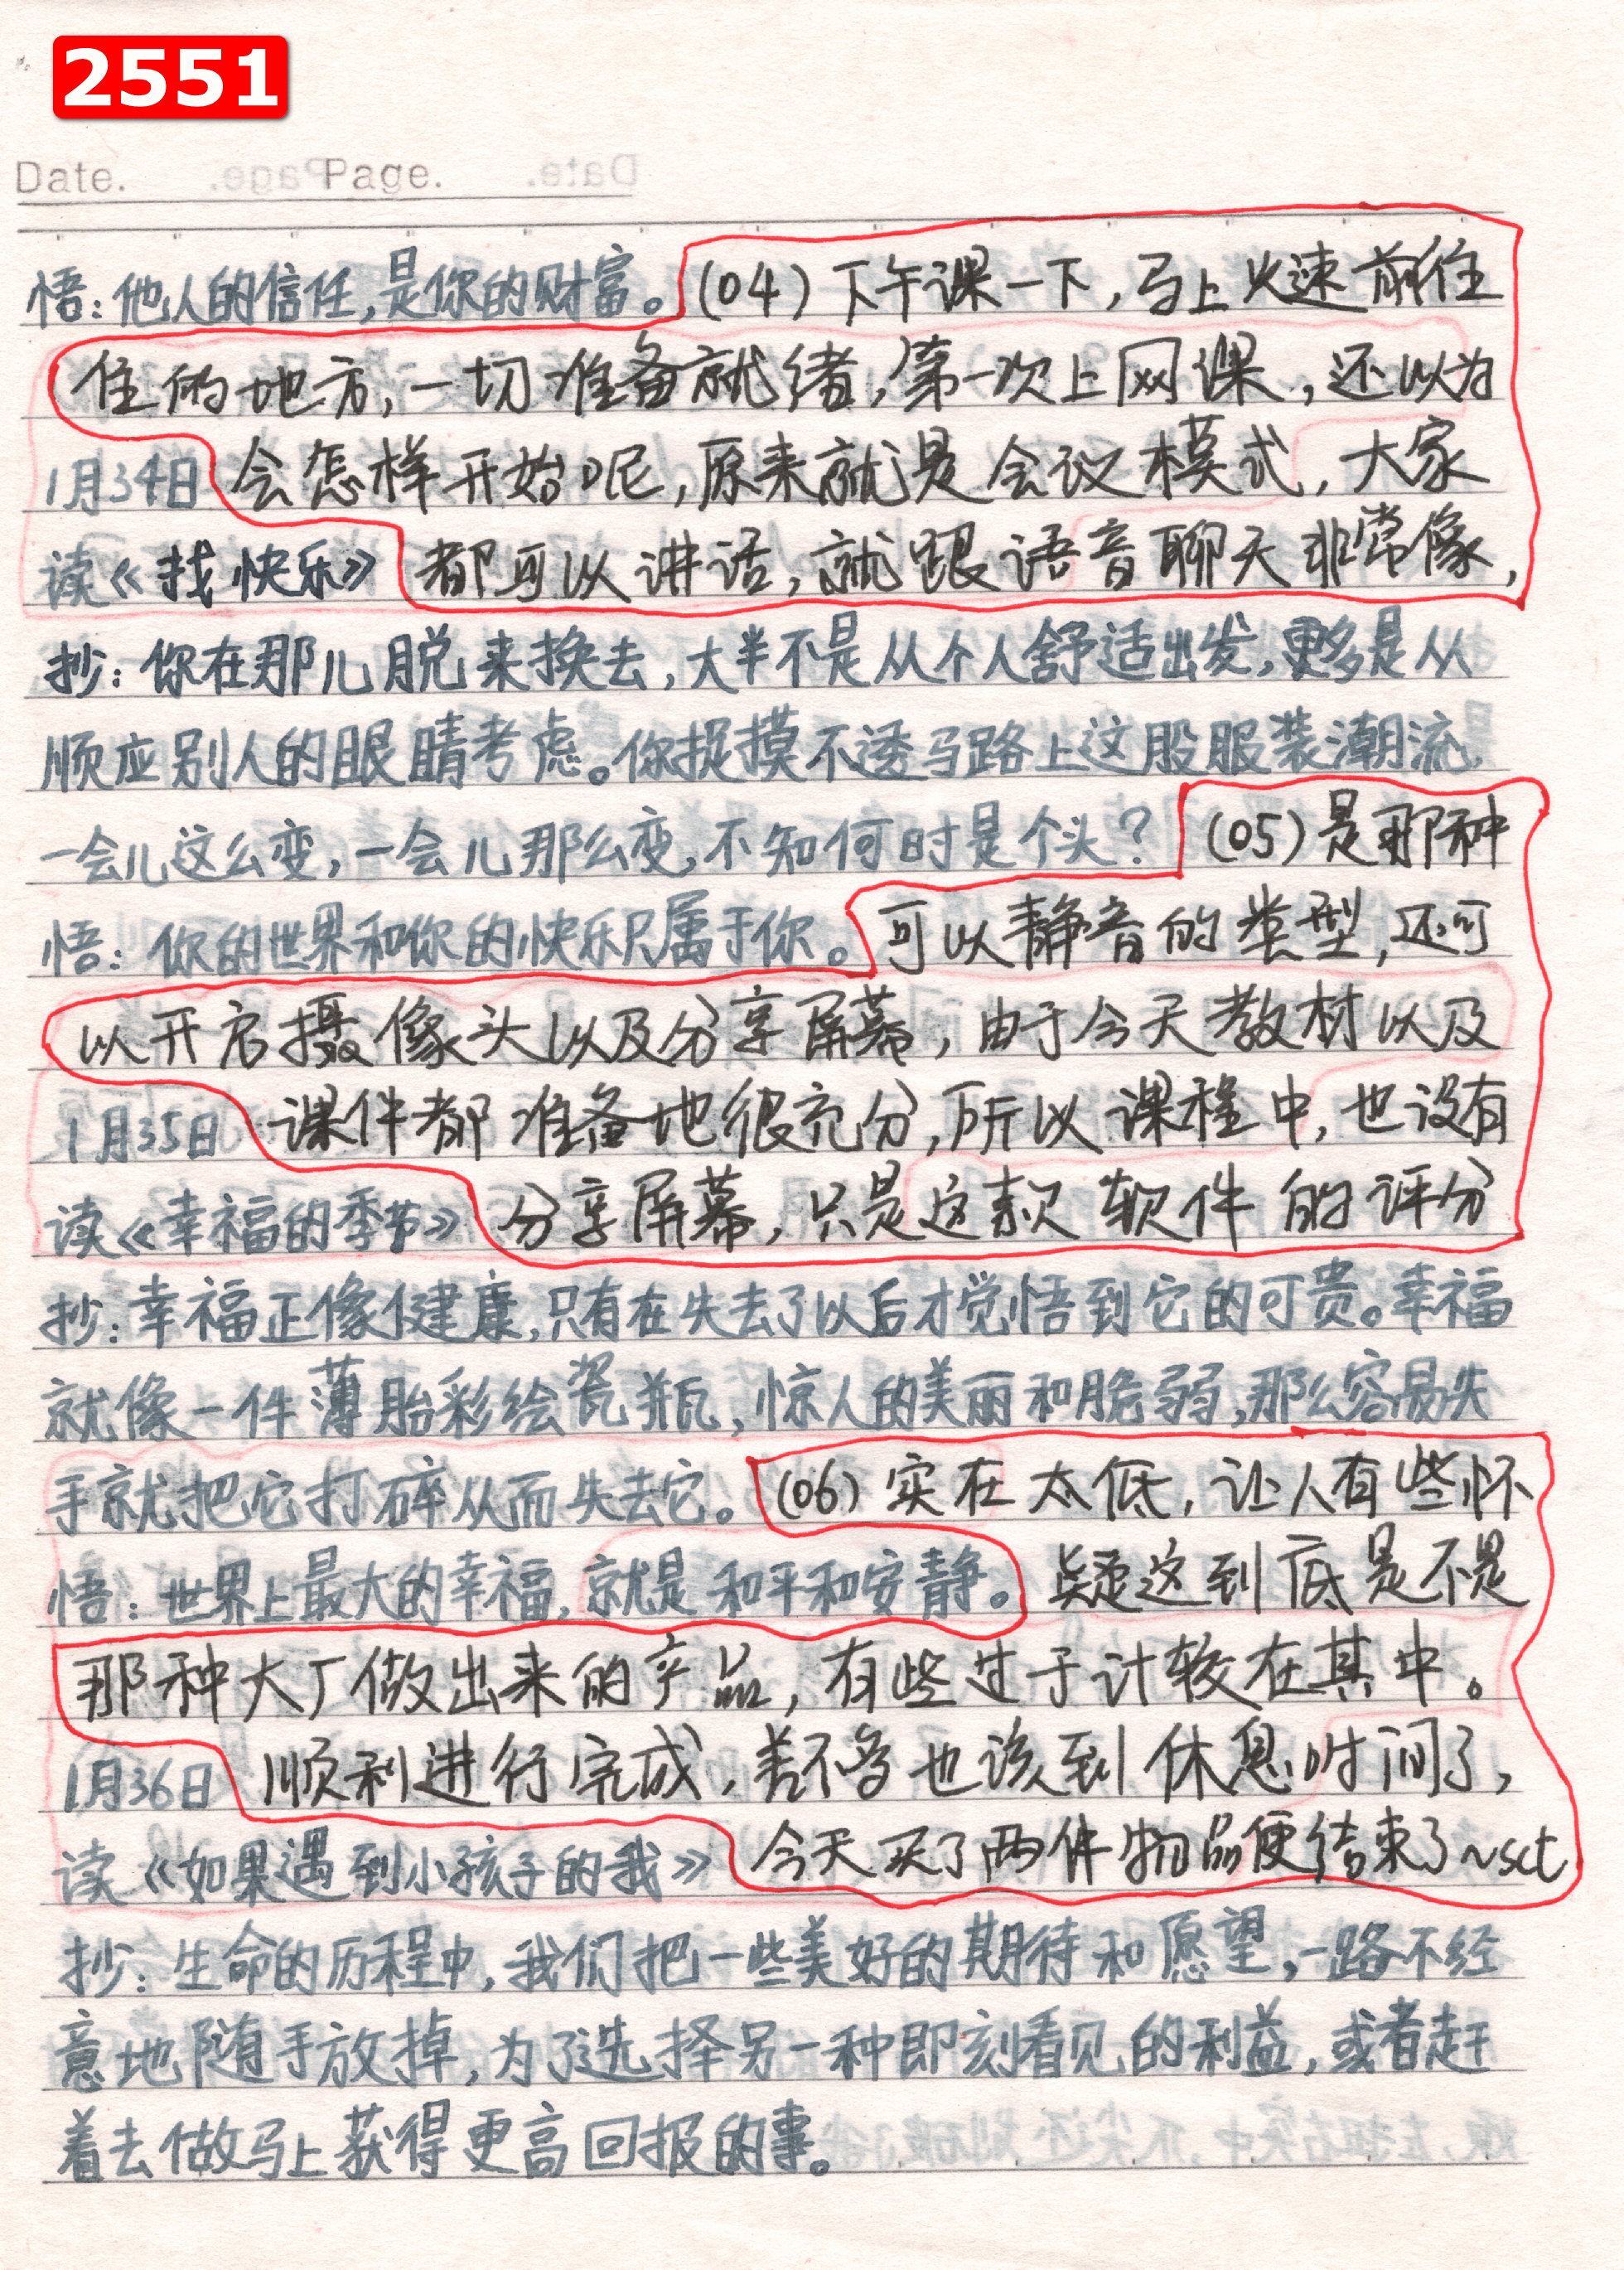 2551
Date. Page.
悟：他人的信任，是你的财富。(04)下午课一下，马上火速前往
住的地方，一切准备就绪，第一次上网课，还以为
1月34日 会怎样开始呢，原来就是会议模式，大家
读《找快乐》都可以讲话，就跟语音聊天非常像，
抄：你在那儿脱来换去，大半不是从个人舒适出发，更多是从
顺应别人的眼睛考虑。你捉摸不透马路上这股服装潮流，
一会儿这么变，一会儿那么变，不知何时是个头？(05)是那种
悟：你的世界和你的快乐只属于你。可以静音的类型，还可
以开启摄像头以及分享屏幕，由于今天教材以及
1月35日 课件都准备地很充分，所以课程中，也没有
读《幸福的季节》分享屏幕，只是这款软件的评分
抄：幸福正像健康，只有在失去了以后才觉悟到它的可贵。幸福
就像一件薄胎彩绘瓷瓶，惊人的美丽和脆弱，那么容易失
手就把它打碎从而失去它。(06)实在太低，让人有些怀
悟：世界上最大的幸福，就是和平和安静。疑这到底是不是
那种大厂做出来的产品，有些过于计较在其中。
1月36日 顺利进行完成，差不多也该到休息时间了，
读《如果遇到小孩子的我》今天买了两件物品便结束了~sct
抄：生命的历程中，我们把一些美好的期待和愿望，一路不经
意地随手放掉，为了选择另一种即刻看见的利益，或者赶
着去做马上获得更高回报的事。